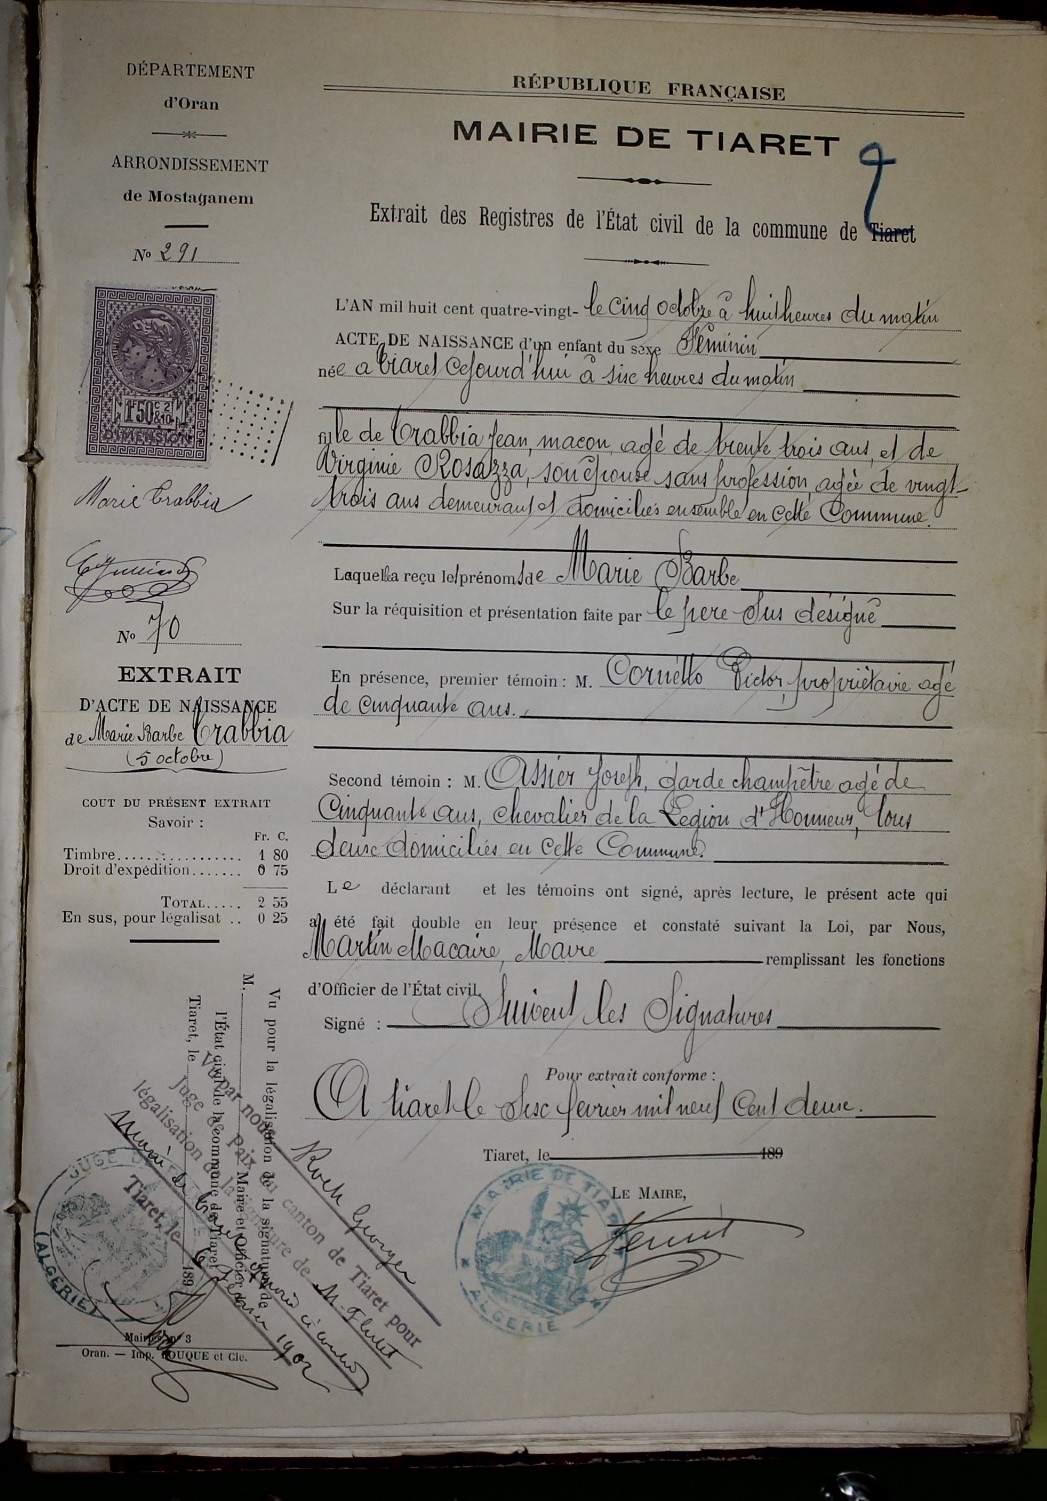 DÉPARTEMENT
d'Oran
ARRONDISSEMENT
de Mostaganem
No 291
1F50c 2/10
DIMENSION
Marie Trabbia
No 70
EXTRAIT
D'ACTE DE NAISSANCE
de Marie Barbe Trabbia
(5 octobre)
COUT DU PRÉSENT EXTRAIT
Savoir :
Fr. C.
Timbre................ 1 80
Droit d'expédition....... 0 75
TOTAL..... 2 55
En sus, pour légalisat .. 0 25
RÉPUBLIQUE FRANÇAISE
MAIRIE DE TIARET
Extrait des Registres de l'État civil de la commune de Tiaret
L'AN mil huit cent quatre-vingt- le cinq octobre à huit heures du matin
ACTE DE NAISSANCE d'un enfant du sexe Féminin
née a Tiaret cejourd'hui à six heures du matin
fille de Trabbia Jean, maçon, agé de trente trois ans, et de
Virginie Rosazza, son épouse sans profession, agée de vingt-
trois ans demeurant et domiciliés ensemble en cette Commune.
Laquelle a reçu les prénoms de Marie Barbe
Sur la réquisition et présentation faite par le père sus désigné
En présence, premier témoin : M. Cornetto Victor, propriétaire agé
de cinquante ans.
Second témoin : M. Assier Joseph, garde champêtre agé de
Cinquante ans, chevalier de la Légion d'Honneur, tous
deux domiciliés en cette Commune.
Le déclarant et les témoins ont signé, après lecture, le présent acte qui
a été fait double en leur présence et constaté suivant la Loi, par Nous,
Martin Macaire, Maire remplissant les fonctions
d'Officier de l'État civil.
Signé : Suivent les Signatures
Pour extrait conforme :
A tiaret le six février mil neuf cent deux.
Tiaret, le 189
LE MAIRE,
MAIRIE DE TIARET
ALGERIE
Vu pour la légalisation de la signature de
M. Maire et Officier de
l'État civil de la commune de Tiaret
Tiaret, le 189
Vu par nous
Juge de Paix du canton de Tiaret pour
légalisation de la signature de M.
Tiaret, le 6 Février 1902
JUGE DE PAIX
(ALGERIE)
Mairie n° 3
Oran. — Imp. FOUQUE et Cie.